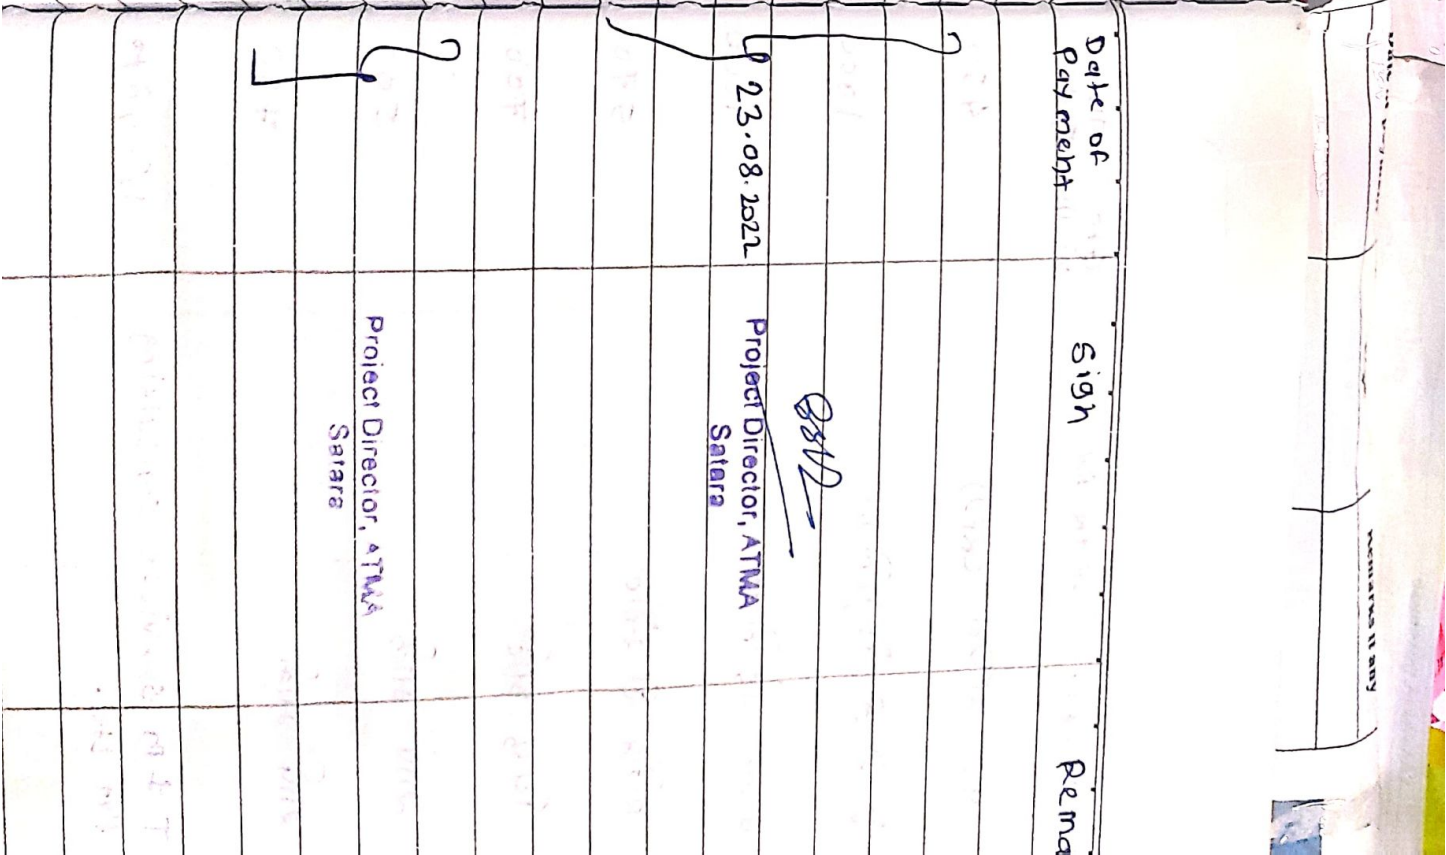 Remarks if any
Date of
Payment
Sign
Rema
23.08.2022
Project Director, ATMA
Satara
Project Director, ATMA
Satara